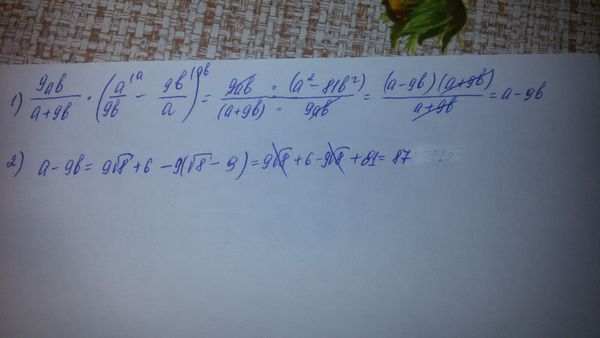 1) 9ab/(a+9b) · (a/9b ⁽ᵃ − 9b/a ⁽⁹ᵇ) = 9ab · (a² − 81b²)/((a+9b) · 9ab) = (a−9b)(a+9b)/(a+9b) = a−9b
2) a−9b = 9√8 + 6 − 9(√8 − 9) = 9√8 + 6 − 9√8 + 81 = 87